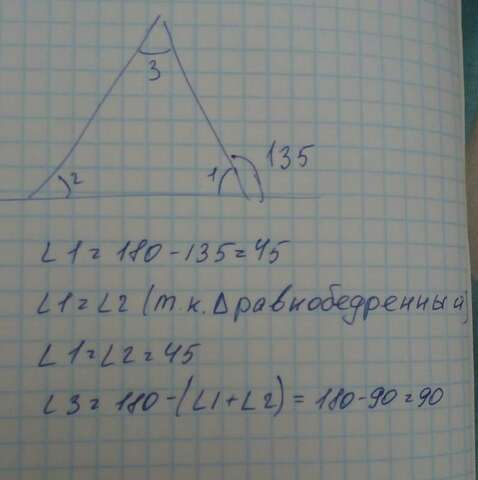 3
135
2
1
∠1 = 180 - 135 = 45
∠1 = ∠2 (т.к. Δ равнобедренный)
∠1 = ∠2 = 45
∠3 = 180 - (∠1 + ∠2) = 180 - 90 = 90